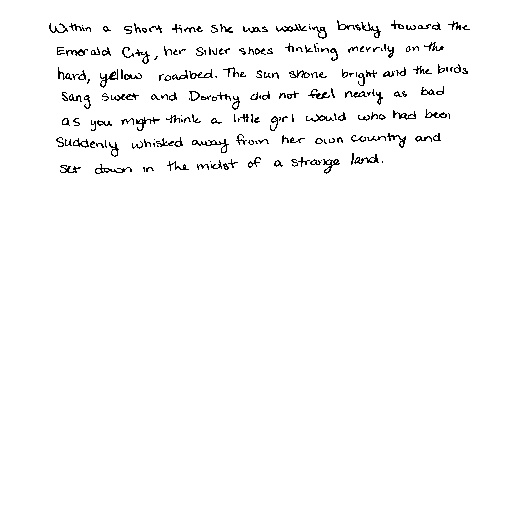 Within a short time she was walking briskly toward the
Emerald City, her Silver shoes tinkling merrily on the
hard, yellow roadbed. The sun shone bright and the birds
sang sweet and Dorothy did not feel nearly as bad
as you might think a little girl would who had been
suddenly whisked away from her own country and
set down in the midst of a strange land.